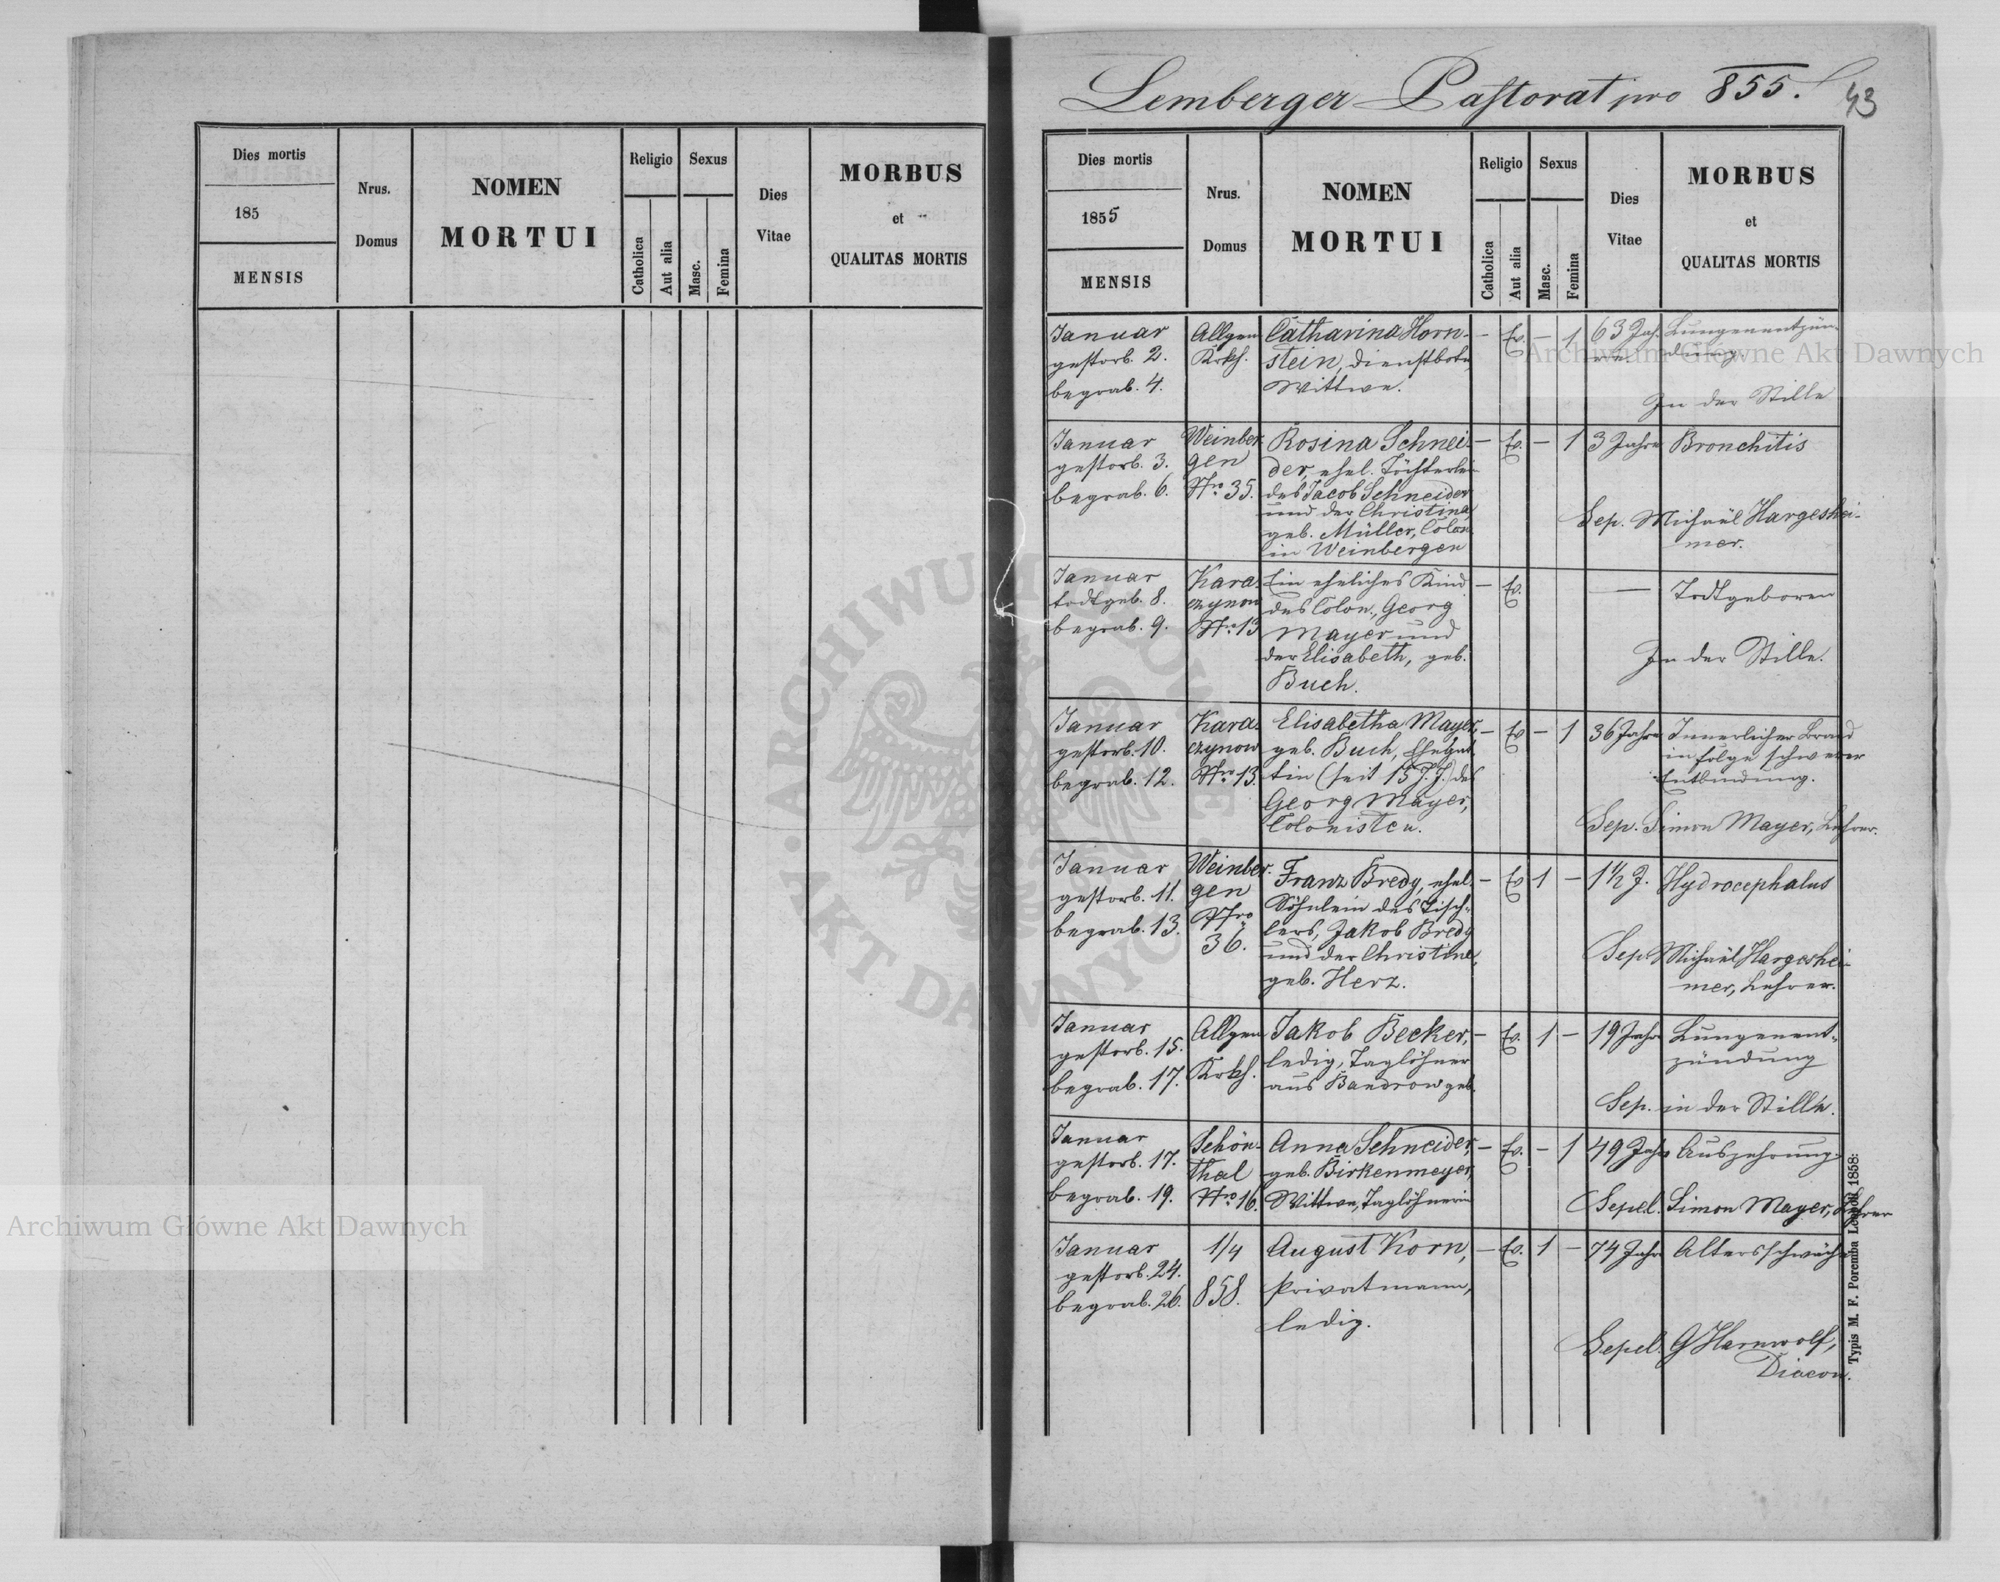 Dies mortis
185
MENSIS
Nrus.
Domus
NOMEN
MORTUI
Religio
Catholica
Aut alia
Sexus
Masc.
Femina
Dies
Vitae
MORBUS
et
QUALITAS MORTIS
Lemberger Pastorat pro 855.
43
Dies mortis
1855
MENSIS
Nrus.
Domus
NOMEN
MORTUI
Religio
Catholica
Aut alia
Sexus
Masc.
Femina
Dies
Vitae
MORBUS
et
QUALITAS MORTIS
Januar
gestorb. 2.
begrab. 4.
Allgem
Krkh.
Catharina Horn-
stein, Dienstbote
Wittwe.
– Ev. – 1
63 Jah-
re
Lungenentzün-
dung
In der Stille
Januar
gestorb. 3.
begrab. 6.
Weinber-
gen
Nro 35.
Rosina Schnei-
der, ehel. Töchterlei
des Jacob Schneider
und der Christina
geb. Müller, Colon.
in Weinbergen
– Ev. – 1
3 Jahre
Bronchitis
Sep. Michael Hargeshei-
mer.
Januar
todtgeb. 8.
begrab. 9.
Kara
czynow
Nro 13
Ein eheliches Kind
des Colon. Georg
Mayer und
der Elisabeth, geb.
Buch.
– Ev.
—
Todtgeboren
In der Stille.
Januar
gestorb. 10.
begrab. 12.
Kara-
czynow
Nro 13.
Elisabetha Mayer,
geb. Buch, Ehegat
tin (seit 15 J.) des
Georg Mayer,
Colonisten.
– Ev – 1
36 Jahre
Innerlicher Brand
in folge schwerer
Entbindung.
Sep. Simon Mayer, Lehrer.
Januar
gestorb. 11.
begrab. 13.
Weinber-
gen
Nro
36.
Franz Bredy, ehel.
Söhnlein des Tisch-
lers, Jakob Bredy
und der Christine,
geb. Herz.
– Ev 1 –
1 1/2 J.
Hydrocephalus
Sep. Michael Hargeshei-
mer, Lehrer.
Januar
gestorb. 15.
begrab. 17.
Allgem
Krkh.
Jakob Becker,
ledig, Taglöhner
aus Bandrow geb.
– Ev. 1 –
19 Jahre
Lungenent-
zündung
Sep. in der Stille.
Januar
gestorb. 17.
begrab. 19.
Schön-
thal
Nro 16.
Anna Schneider,
geb. Birkenmeyer,
Wittwe, Taglöhnerin
– Ev. – 1
49 Jahre
Auszehrung
Sepel. Simon Mayer, Lehrer
Januar
gestorb. 24.
begrab. 26.
1/4
858.
August Korn,
Privatmann,
ledig.
– Ev. 1 –
74 Jahre
Altersschwäche
Sepel. G Harnwolf,
Diacon.
Typis M. F. Poremba Leopoli 1858.
Archiwum Główne Akt Dawnych
Archiwum Główne Akt Dawnych
ARCHIWUM GŁÓWNE AKT DAWNYCH